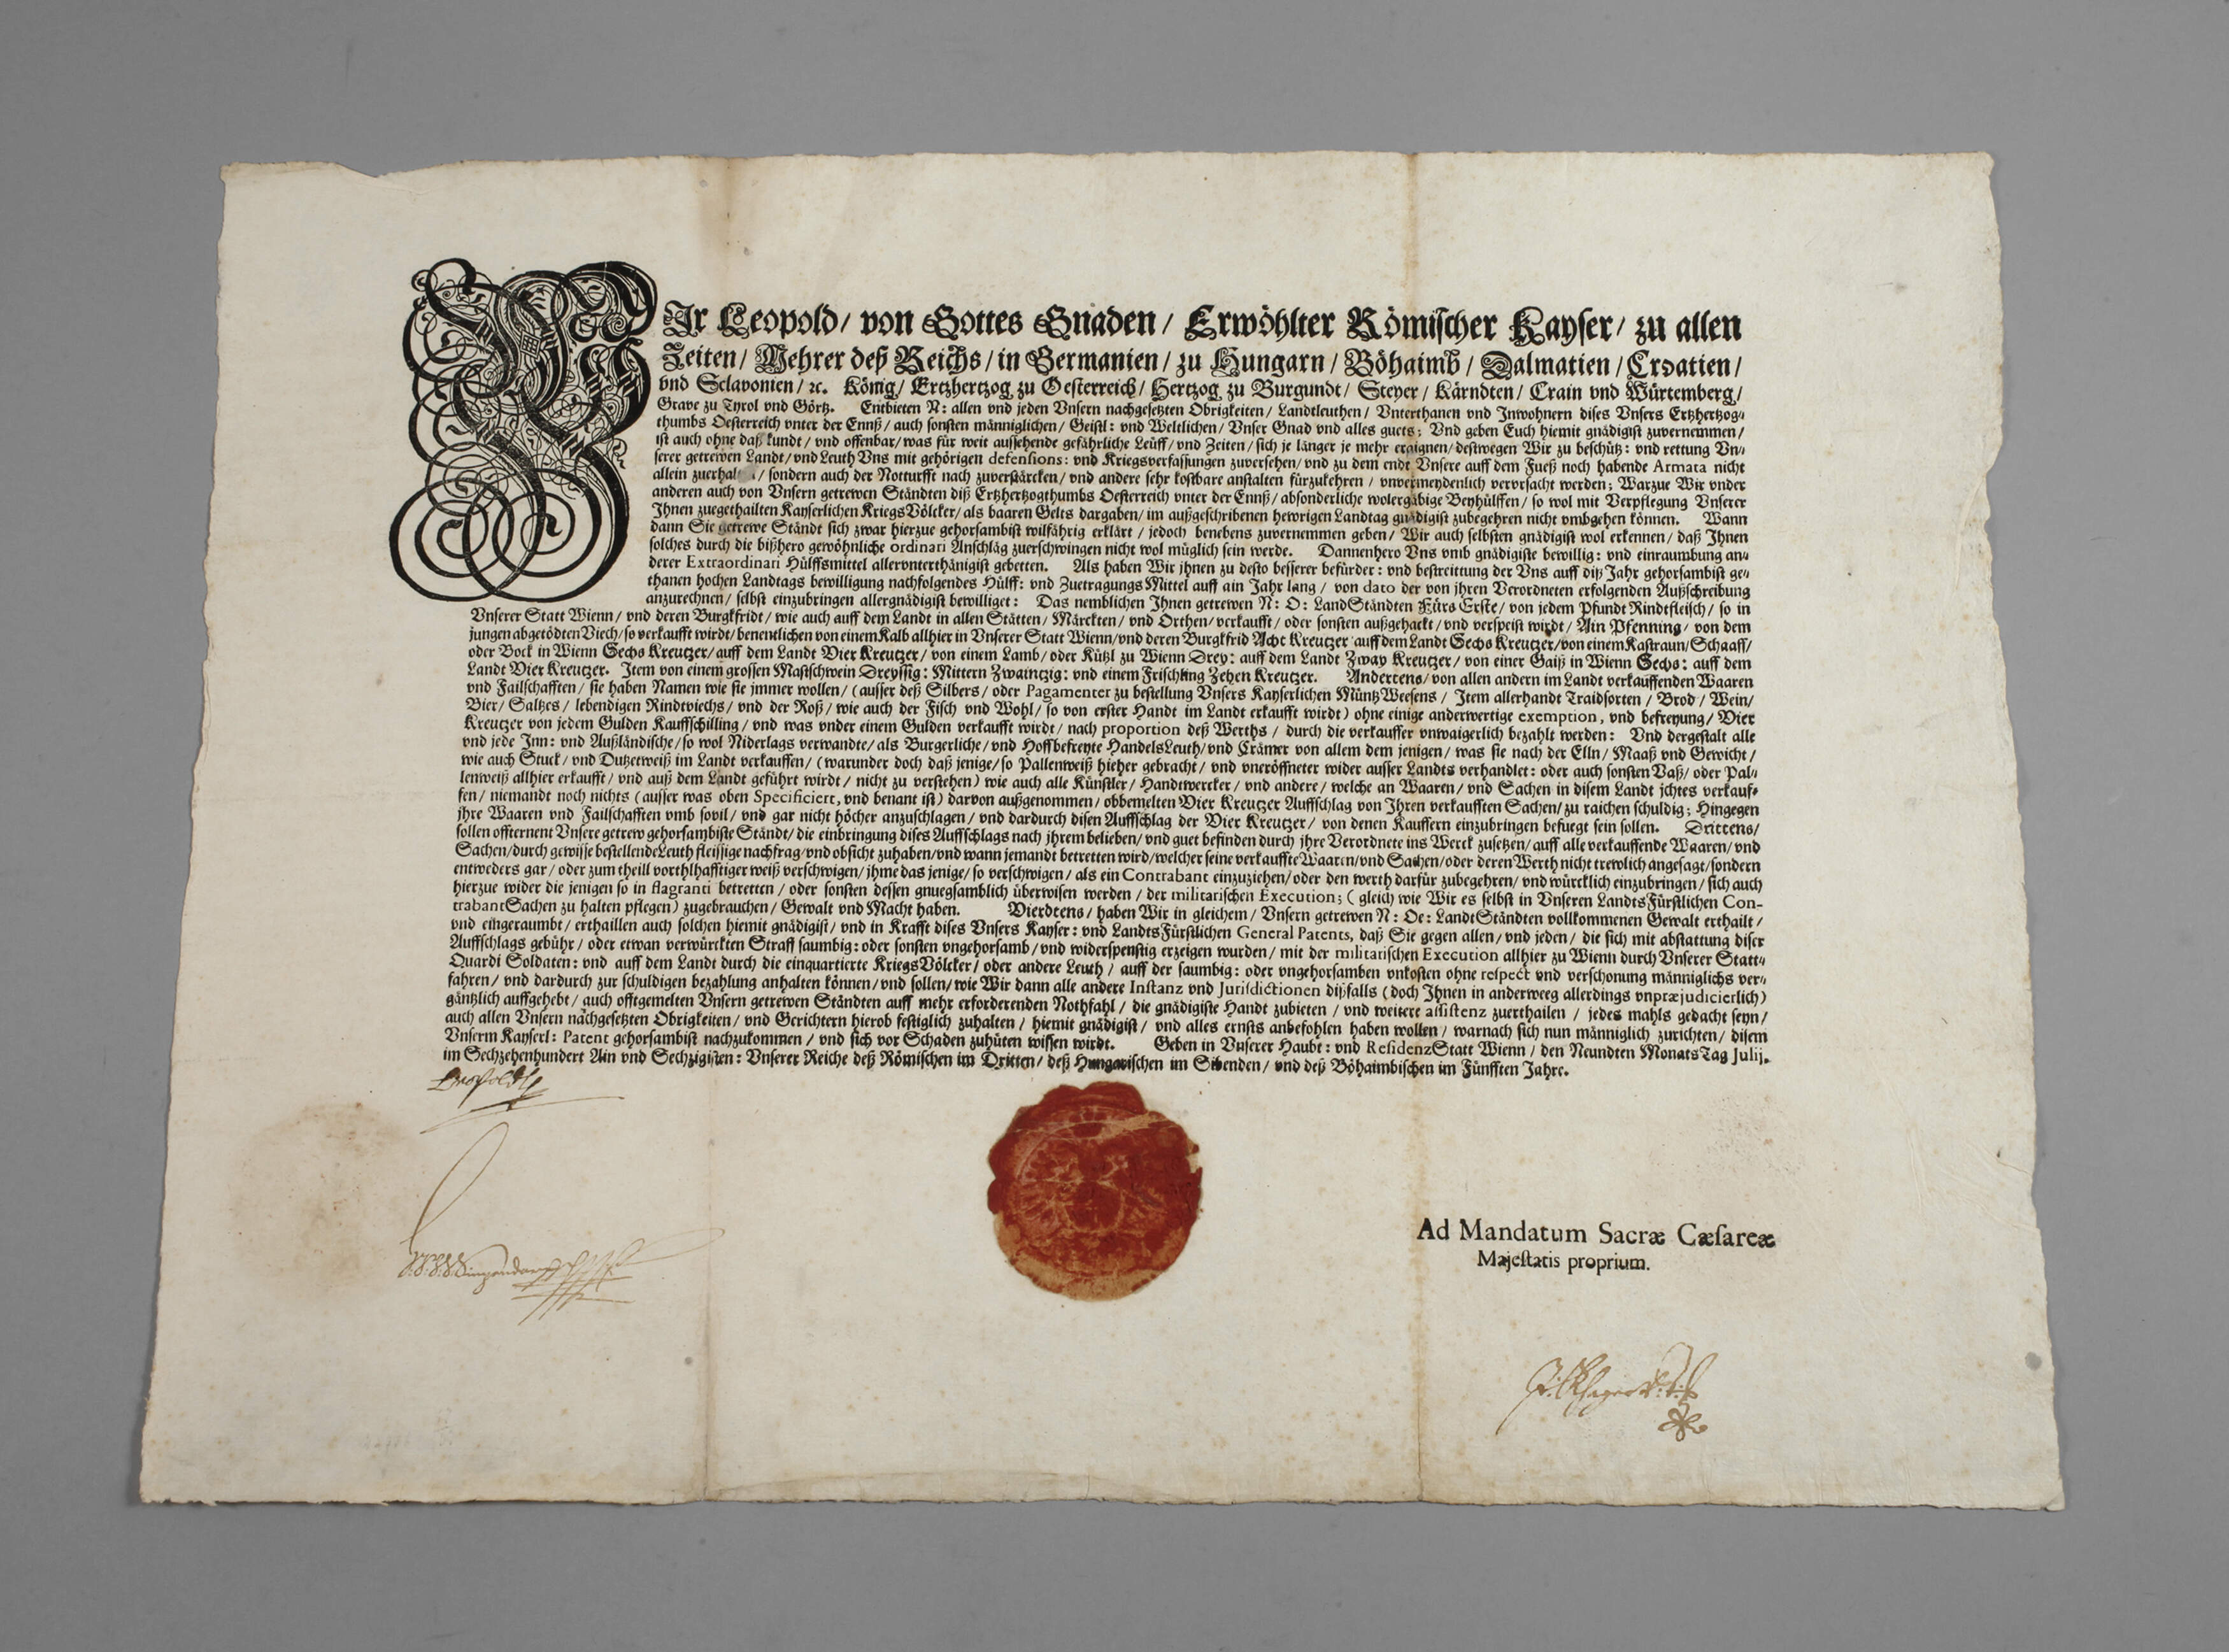 WIr Leopold/ von Gottes Gnaden/ Erwöhlter Römischer Kayser/ zu allen
Zeiten/ Mehrer deß Reichs/ in Germanien/ zu Hungarn/ Böhaimb/ Dalmatien/ Croatien/
vnd Sclavonien/ ꝛc. König/ Ertzhertzog zu Oesterreich/ Hertzog zu Burgundt/ Steyer/ Kärndten/ Crain vnd Würtemberg/
Grave zu Tyrol vnd Görtz. Entbieten N: allen vnd jeden Vnsern nachgesetzten Obrigkeiten/ Landtleuthen/ Vnterthanen vnd Inwohnern dises Vnsers Ertzhertzog-
thumbs Oesterreich vnter der Ennß/ auch sonsten männiglichen/ Geistl: vnd Weltlichen/ Vnser Gnad vnd alles guets; Vnd geben Euch hiemit gnädigist zuvernemmen/
ist auch ohne daß kundt/ vnd offenbar/ was für weit aussehende gefährliche Leüff/ vnd Zeiten/ sich je länger je mehr eraignen/ destwegen Wir zu beschütz: vnd rettung Vn-
serer getrewen Landt/ vnd Leuth Vns mit gehörigen defensions: vnd Kriegsverfassungen zuversehen/ vnd zu dem endt Vnsere auff dem Fueß noch habende Armata nicht
allein / sondern auch der Notturfft nach zuverstärcken/ vnd andere sehr kostbare anstalten fürzukehren/ vnvermeydenlich vervrsacht werden; Warzue Wir vnder
anderen auch von Vnsern getrewen Ständten diß Ertzhertzogthumbs Oesterreich vnter der Ennß/ absonderliche wolergäbige Beyhülffen/ so wol mit Verpflegung Vnserer
Ihnen zuegethailten Kayserlichen KriegsVölcker/ als baaren Gelts dargaben/ im außgeschribenen hewrigen Landtag gnädigist zubegehren nicht vmbgehen können. Wann
dann Sie getrewe Ständt sich zwar hierzue gehorsambist wilfährig erklärt/ jedoch benebens zuvernemmen geben/ Wir auch selbsten gnädigist wol erkennen/ daß Ihnen
solches durch die bißhero gewöhnliche ordinari Anschläg zuerschwingen nicht wol müglich sein werde. Dannenhero Vns vmb gnädigiste bewillig: vnd einraumbung an-
derer Extraordinari Hülffsmittel allervnterthänigist gebetten. Als haben Wir jhnen zu desto besserer befürder: vnd bestreittung der Vns auff diß Jahr gehorsambist ge-
thanen hochen Landtags bewilligung nachfolgendes Hülff: vnd ZuetragungsMittel auff ain Jahr lang/ von dato der von jhren Verordneten erfolgenden Außschreibung
anzurechnen/ selbst einzubringen allergnädigist bewilliget: Das nemblichen Ihnen getrewen N: O: LandStändten Fürs Erste/ von jedem Pfundt Rindtfleisch/ so in
Vnserer Statt Wienn/ vnd deren Burgkfridt/ wie auch auff dem Landt in allen Stätten/ Märckten/ vnd Orthen/ verkaufft/ oder sonsten außgehackt/ vnd verspeist wirdt/ Ain Pfenning/ von dem
jungen abgetödten Viech/ so verkaufft wirdt/ benentlichen von einem Kalb allhier in Vnserer Statt Wienn/ vnd deren Burgkfrid Acht Kreutzer auff dem Landt Sechs Kreutzer/ von einem Kastraun/ Schaaff/
oder Bock in Wienn Sechs Kreutzer/ auff dem Landt Vier Kreutzer/ von einem Lamb/ oder Kützl zu Wienn Drey: auff dem Landt Zway Kreutzer/ von einer Gaiß in Wienn Sechs: auff dem
Landt Vier Kreutzer. Item von einem grossen Mastschwein Dreyssig: Mittern Zwaintzig: vnd einem Frischling Zehen Kreutzer. Andertens/ von allen andern im Landt verkauffenden Waaren
vnd Failschafften/ sie haben Namen wie sie jmmer wollen/ (ausser deß Silbers/ oder Pagamenter zu bestellung Vnsers Kayserlichen MüntzWeesens/ Item allerhandt Traidsorten/ Brod/ Wein/
Bier/ Saltzes/ lebendigen Rindtviechs/ vnd der Roß/ wie auch der Fisch vnd Wohl/ so von erster Handt im Landt erkaufft wirdt) ohne einige anderwertige exemption, vnd befreyung/ Vier
Kreutzer von jedem Gulden Kauffschilling/ vnd was vnder einem Gulden verkaufft wirdt/ nach proportion deß Werths/ durch die verkauffer vnwaigerlich bezahlt werden: Vnd dergestalt alle
vnd jede Inn: vnd Außländische/ so wol Niderlags verwandte/ als Burgerliche/ vnd Hoffbefreyte HandelsLeuth/ vnd Crämer von allem dem jenigen/ was sie nach der Elln/ Maaß vnd Gewicht/
wie auch Stuck/ vnd Dutzetweiß im Land verkauffen/ (warunder doch daß jenige/ so Pallenweiß hieher gebracht/ vnd vneröffneter wider ausser Landts verhandlet: oder auch sonsten Vaß/ oder Pal-
lenweiß allhier erkaufft/ vnd auß dem Landt geführt wirdt/ nicht zu verstehen) wie auch alle Künstler/ Handtwercker/ vnd andere/ welche an Waaren/ vnd Sachen in disem Landt jchtes verkauf-
fen/ niemandt noch nichts (ausser was oben Specificiert, vnd benant ist) darvon außgenommen/ obbemelten Vier Kreutzer Auffschlag von Ihren verkaufften Sachen/ zu raichen schuldig; Hingegen
jhre Waaren vnd Failschafften vmb sovil/ vnd gar nicht höcher anzuschlagen/ vnd dardurch disen Auffschlag der Vier Kreutzer/ von denen Kauffern einzubringen befuegt sein sollen. Drittens/
sollen offternent Vnsere getrew gehorsambiste Ständt/ die einbringung dises Auffschlags nach jhrem belieben/ vnd guet befinden durch jhre Verordnete ins Werck zusetzen/ auff alle verkauffende Waaren/ vnd
Sachen/ durch gewisse bestellende Leuth fleissige nachfrag/ vnd obsicht zuhaben/ vnd wann jemandt betretten wird/ welcher seine verkauffte Waaren/ vnd Sachen/ oder deren Werth nicht trewlich angesagt/ sondern
entweders gar/ oder zum theill vorthlhafftiger weiß verschwigen/ jhme das jenige/ so verschwigen/ als ein Contrabant einzuziehen/ oder den werth darfür zubegehren/ vnd würcklich einzubringen/ sich auch
hierzue wider die jenigen so in flagranti betretten/ oder sonsten dessen gnuegsamblich überwisen werden/ der militarischen Execution; (gleich wie Wir es selbst in Vnseren LandtsFürstlichen Con-
trabantSachen zu halten pflegen) zugebrauchen/ Gewalt vnd Macht haben. Vierdtens/ haben Wir in gleichem/ Vnsern getrewen N: Oe: LandtStändten vollkommenen Gewalt erthailt/
vnd eingeraumbt/ erthaillen auch solchen hiemit gnädigist/ vnd in Krafft dises Vnsers Kayser: vnd LandtsFürstlichen General Patents, daß Sie gegen allen/ vnd jeden/ die sich mit abstattung diser
Auffschlags gebühr/ oder etwan verwürckten Straff saumbig: oder sonsten vngehorsamb/ vnd widerspenstig erzeigen wurden/ mit der militarischen Execution allhier zu Wienn durch Vnserer Statt-
Quardi Soldaten: vnd auff dem Landt durch die einquartierte KriegsVölcker/ oder andere Leuth/ auff der saumbig: oder vngehorsamben vnkosten ohne respect vnd verschonung männiglichs ver-
fahren/ vnd dardurch zur schuldigen bezahlung anhalten können/ vnd sollen/ wie Wir dann alle andere Instanz vnd Jurisdictionen dißfalls (doch Ihnen in anderweeg allerdings vnpræjudicierlich)
gäntzlich auffgehebt/ auch offtgemelten Vnsern getrewen Ständten auff mehr erforderenden Nothfahl/ die gnädigiste Handt zubieten/ vnd weitere assistenz zuerthailen/ jedes mahls gedacht seyn/
auch allen Vnsern nachgesetzten Obrigkeiten/ vnd Gerichtern hierob festiglich zuhalten/ hiemit gnädigist/ vnd alles ernsts anbefohlen haben wollen/ warnach sich nun männiglich zurichten/ disem
Vnserm Kayserl: Patent gehorsambist nachzukommen/ vnd sich vor Schaden zuhüten wissen wirdt. Geben in Vnserer Haubt: vnd ResidenzStatt Wienn/ den Neundten MonatsTag Julij.
im Sechzehenhundert Ain vnd Sechzigisten: Vnserer Reiche deß Römischen im Dritten/ deß Hungarischen im Sibenden/ vnd deß Böhaimbischen im Fünfften Jahre.
Leopold
Ad Mandatum Sacræ Cæsareæ
Majestatis proprium.